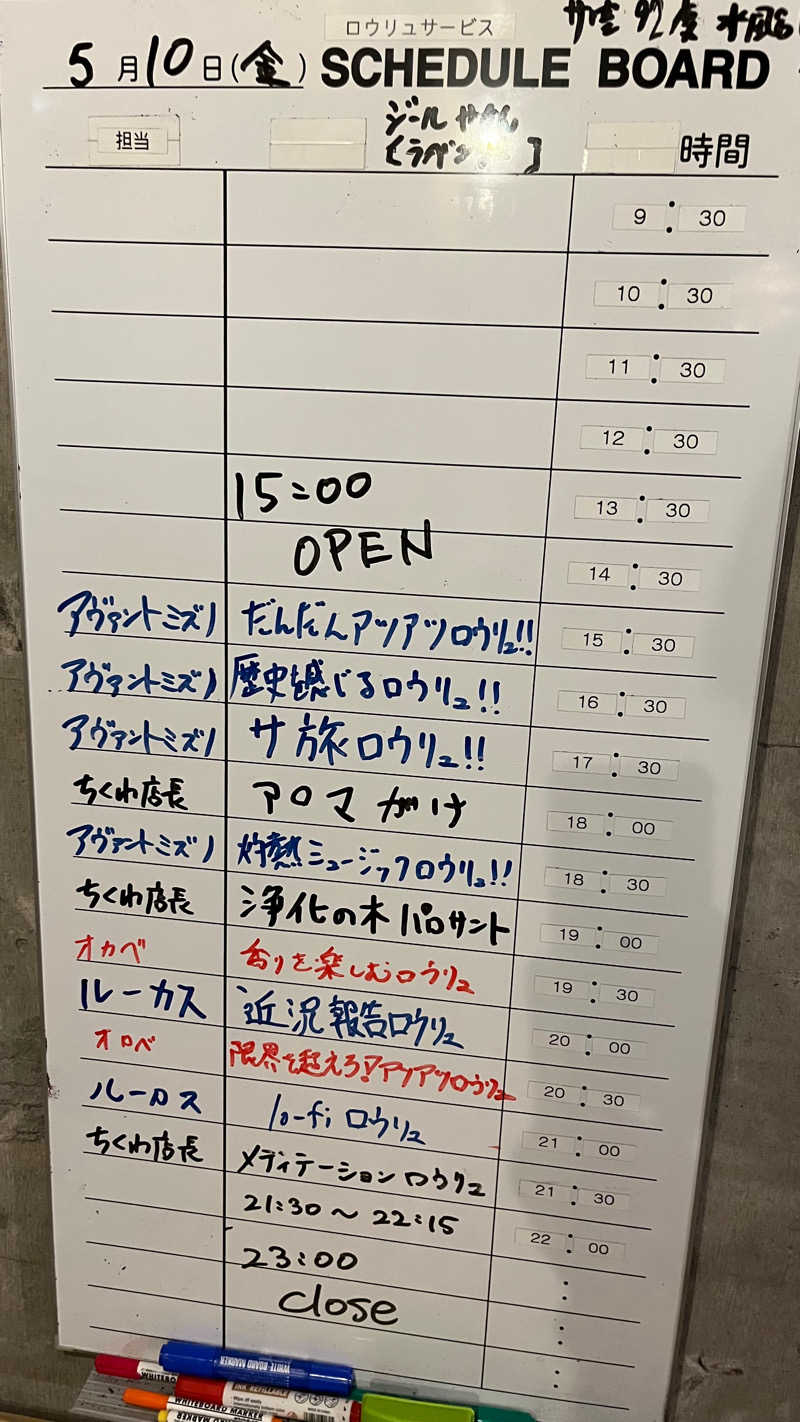 ロウリュサービス
サ室 92度 水風呂
5月10日(金) SCHEDULE BOARD
担当 時間
9:30
10:30
11:30
12:30
15:00 13:30
OPEN 14:30
アヴァントミズノ だんだんアツアツロウリュ!! 15:30
アヴァントミズノ 歴史を感じるロウリュ!! 16:30
アヴァントミズノ サ旅ロウリュ!! 17:30
ちくわ店長 アロマがけ 18:00
アヴァントミズノ 灼熱ミュージックロウリュ!! 18:30
ちくわ店長 浄化の木 パロサント 19:00
オカベ 香りを楽しむロウリュ 19:30
ルーカス 近況報告ロウリュ 20:00
オロベ 限界を超えろ!アツアツロウリュ 20:30
ルーカス lo-fiロウリュ 21:00
ちくわ店長 メディテーションロウリュ 21:30
21:30〜22:15 22:00
23:00
close
WHITE BOARD MARKER
INK REFILLABLE
WHITEBOARD MARKER